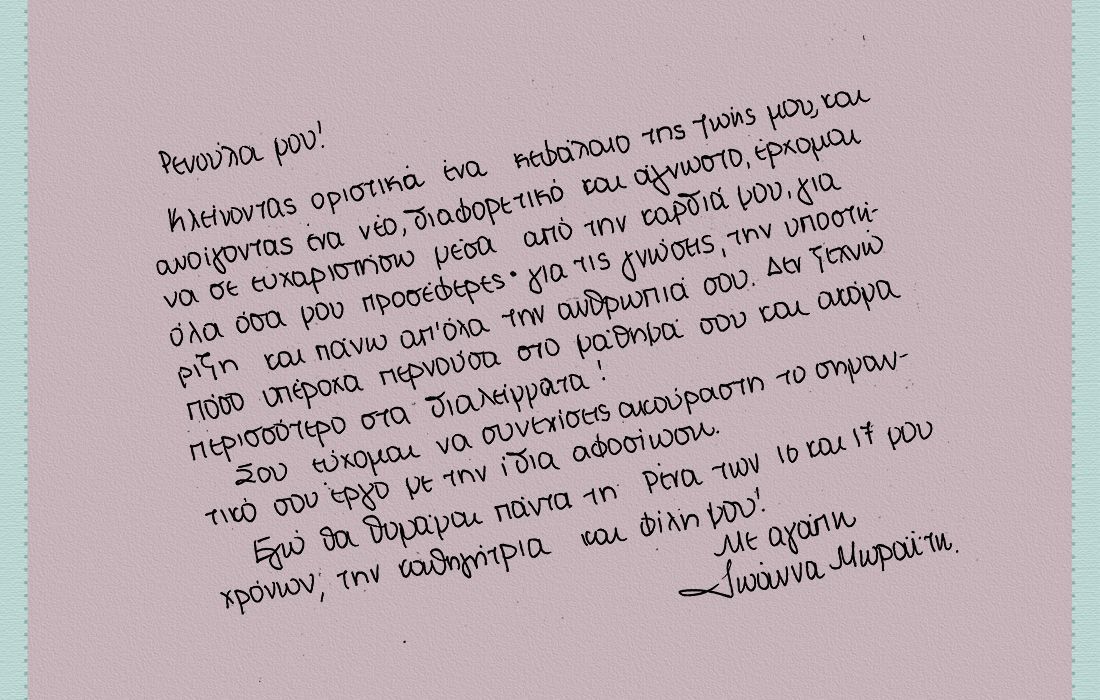 Ρενούλα μου!
Κλείνοντας οριστικά ένα κεφάλαιο της ζωής μου, και
ανοίγοντας ένα νέο, διαφορετικό και άγνωστο, έρχομαι
να σε ευχαριστήσω μέσα από την καρδιά μου, για
όλα όσα μου προσέφερες· για τις γνώσεις, την υποστή-
ριξη και πάνω απ' όλα την ανθρωπιά σου. Δεν ξεχνώ
πόσο υπέροχα περνούσα στο μάθημά σου και ακόμα
περισσότερο στα διαλείμματα!
Σου εύχομαι να συνεχίσεις ακούραστη το σημαν-
τικό σου έργο με την ίδια αφοσίωση.
Εγώ θα θυμάμαι πάντα τη Ρένα των 16 και 17 μου
χρόνων, την καθηγήτρια και φίλη μου!
Με αγάπη
Ιωάννα Μωραΐτη.